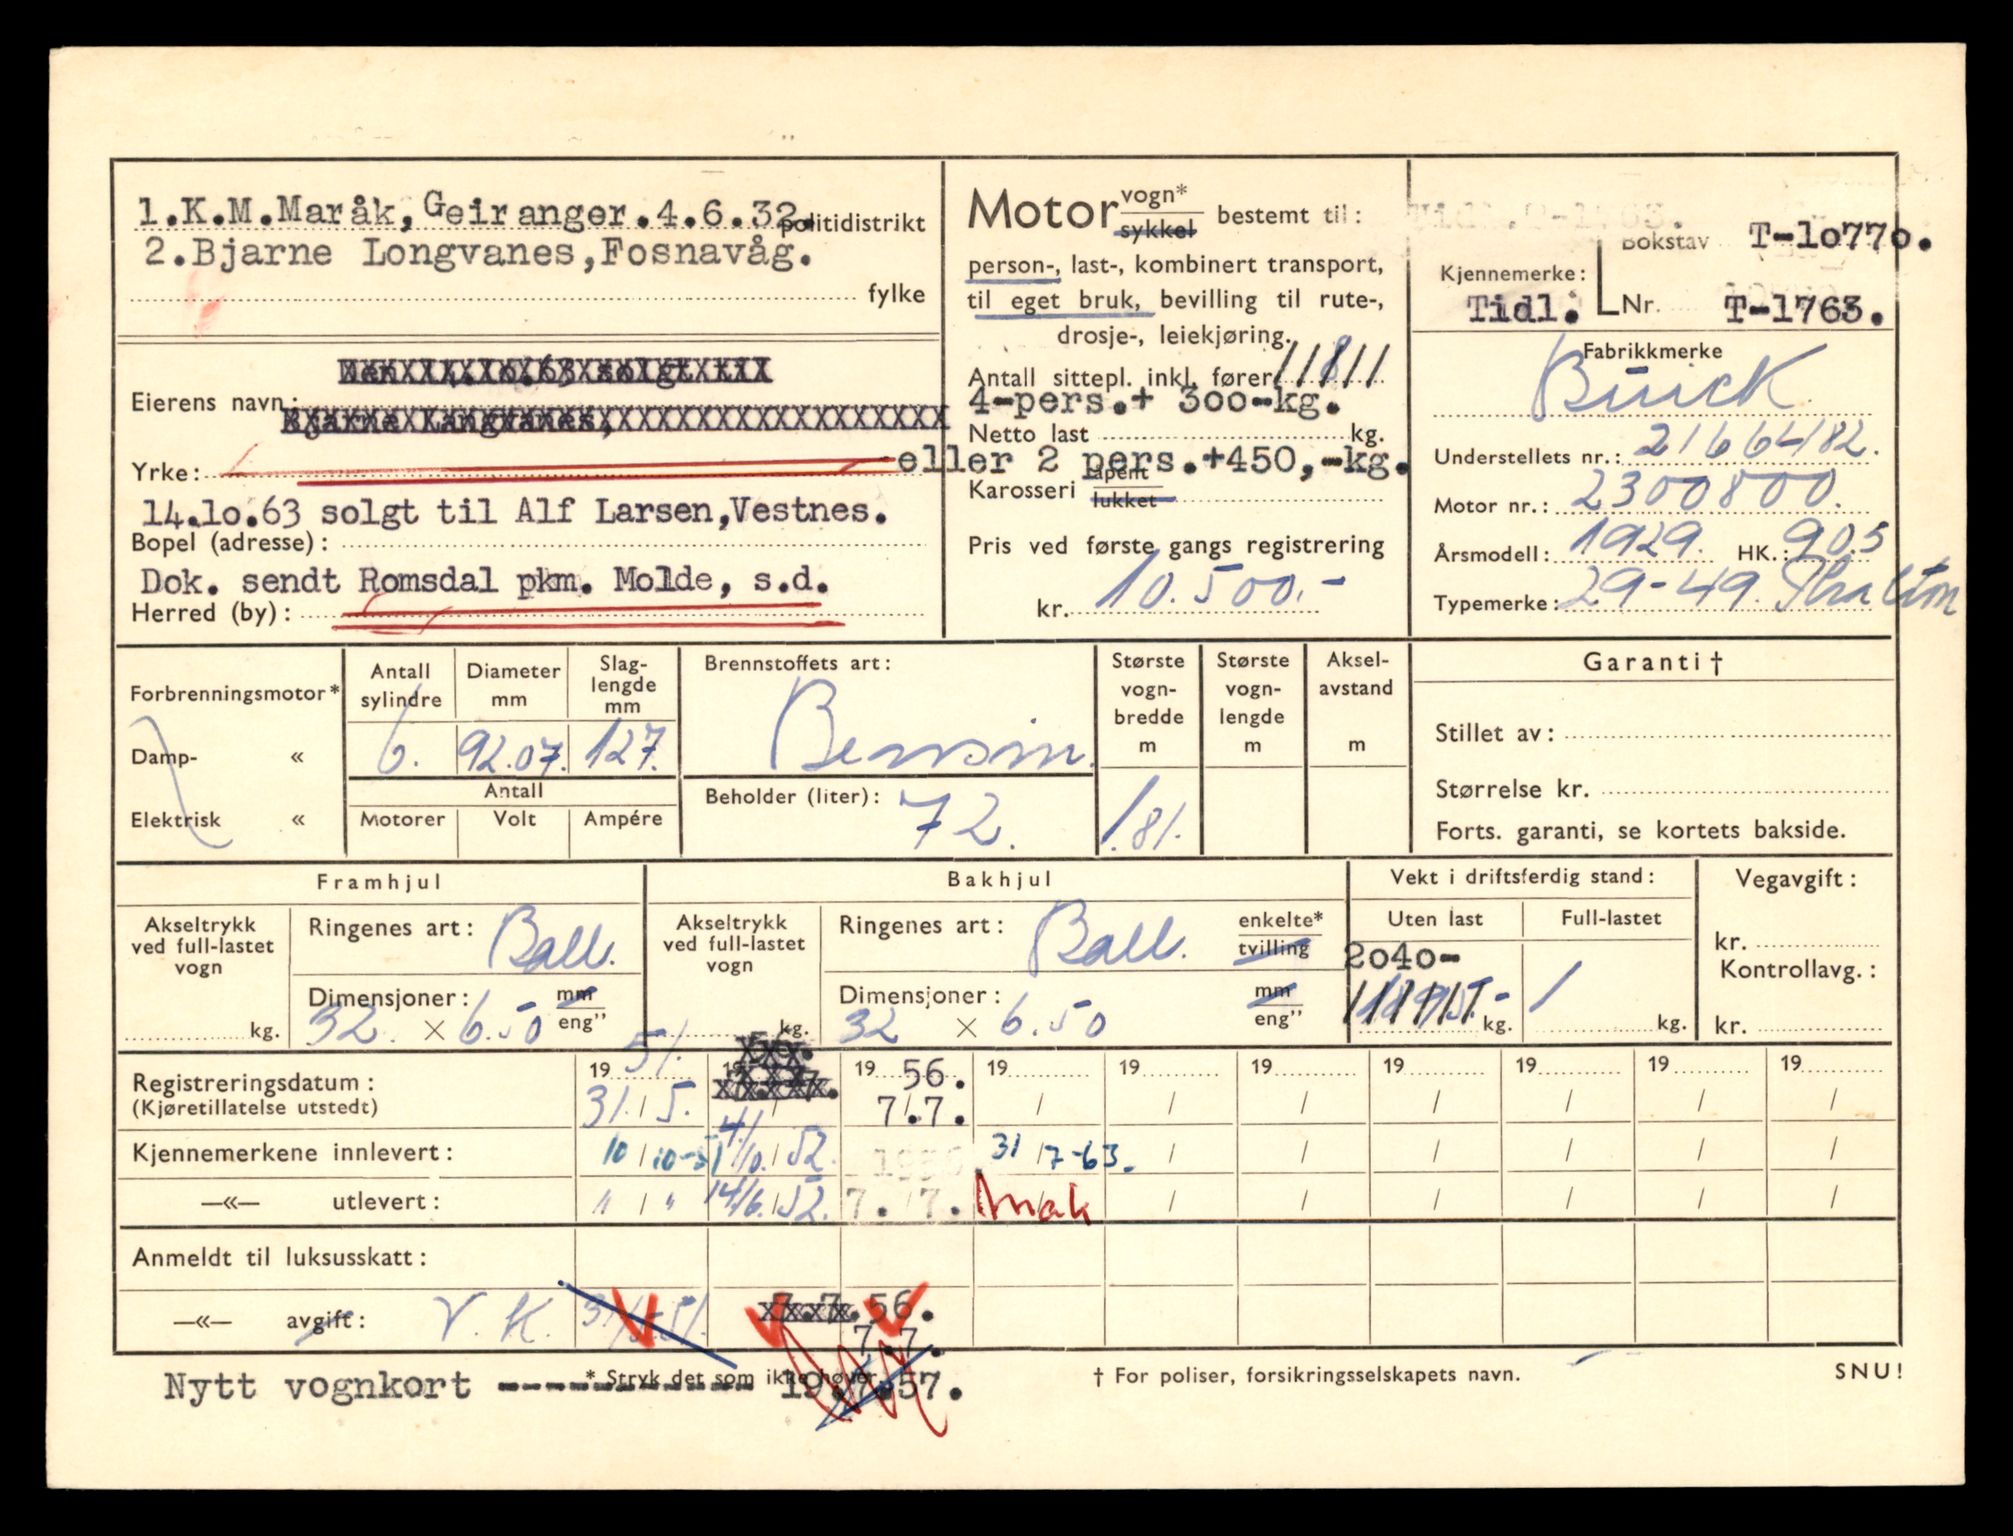 1.K.M.Maråk, Geiranger.4.6.32. politidistrikt
2.Bjarne Longvanes, Fosnavåg.
fylke
Eierens navn:
Bjarne Langvanes,
Yrke:
14.10.63 solgt til Alf Larsen, Vestnes.
Bopel (adresse):
Dok. sendt Romsdal pkm. Molde, s.d.
Herred (by):
Motor vogn* sykkel bestemt til:
person-, last-, kombinert transport,
til eget bruk, bevilling til rute-,
drosje-, leiekjøring.
Antall sittepl. inkl. fører 8
4-pers.+ 300-kg.
Netto last kg.
eller 2 pers.+450,-kg.
Karosseri åpent lukket
Pris ved første gangs registrering
kr. 10.500.-
Bokstav T-10770.
Kjennemerke:
Tidl. Nr. T-1763.
Fabrikkmerke
Buick
Understellets nr.: 2166482.
Motor nr.: 2300800.
Årsmodell: 1929. HK.: 90.5
Typemerke: 29-49.
Forbrenningsmotor*
Damp- «
Elektrisk «
Antall sylindre 6.
Diameter mm 92.07.
Slaglengde mm 127.
Antall
Motorer Volt Ampére
Brennstoffets art:
Bensin.
Beholder (liter): 72.
Største vognbredde m 1.81.
Største vognlengde m
Akselavstand m
Garanti†
Stillet av:
Størrelse kr.
Forts. garanti, se kortets bakside.
Framhjul
Akseltrykk ved full-lastet vogn
kg.
Ringenes art: Ball.
Dimensjoner: mm eng”
32. × 6.50
Bakhjul
Akseltrykk ved full-lastet vogn
kg.
Ringenes art: Ball. enkelte* tvilling
Dimensjoner: mm eng”
32 × 6.50
Vekt i driftsferdig stand:
Uten last Full-lastet
2040-
kg. kg.
Vegavgift:
kr.
Kontrollavg.:
kr.
19 51. 19 56. 19 19 19 19 19 19 19
Registreringsdatum: 31/5. 7.7.
(Kjøretillatelse utstedt)
Kjennemerkene innlevert: 10/10-51 4/10. 52. 31/7-63.
—«— utlevert: " / " 14/6. 52. 7. 7. Mak
Anmeldt til luksusskatt:
—«— avgift: V. K. 31/5-51. 7.7.56.
7.7.
Nytt vognkort ------------ 19.7.57.
* Stryk det som ikke høver.
† For poliser, forsikringsselskapets navn.
SNU!